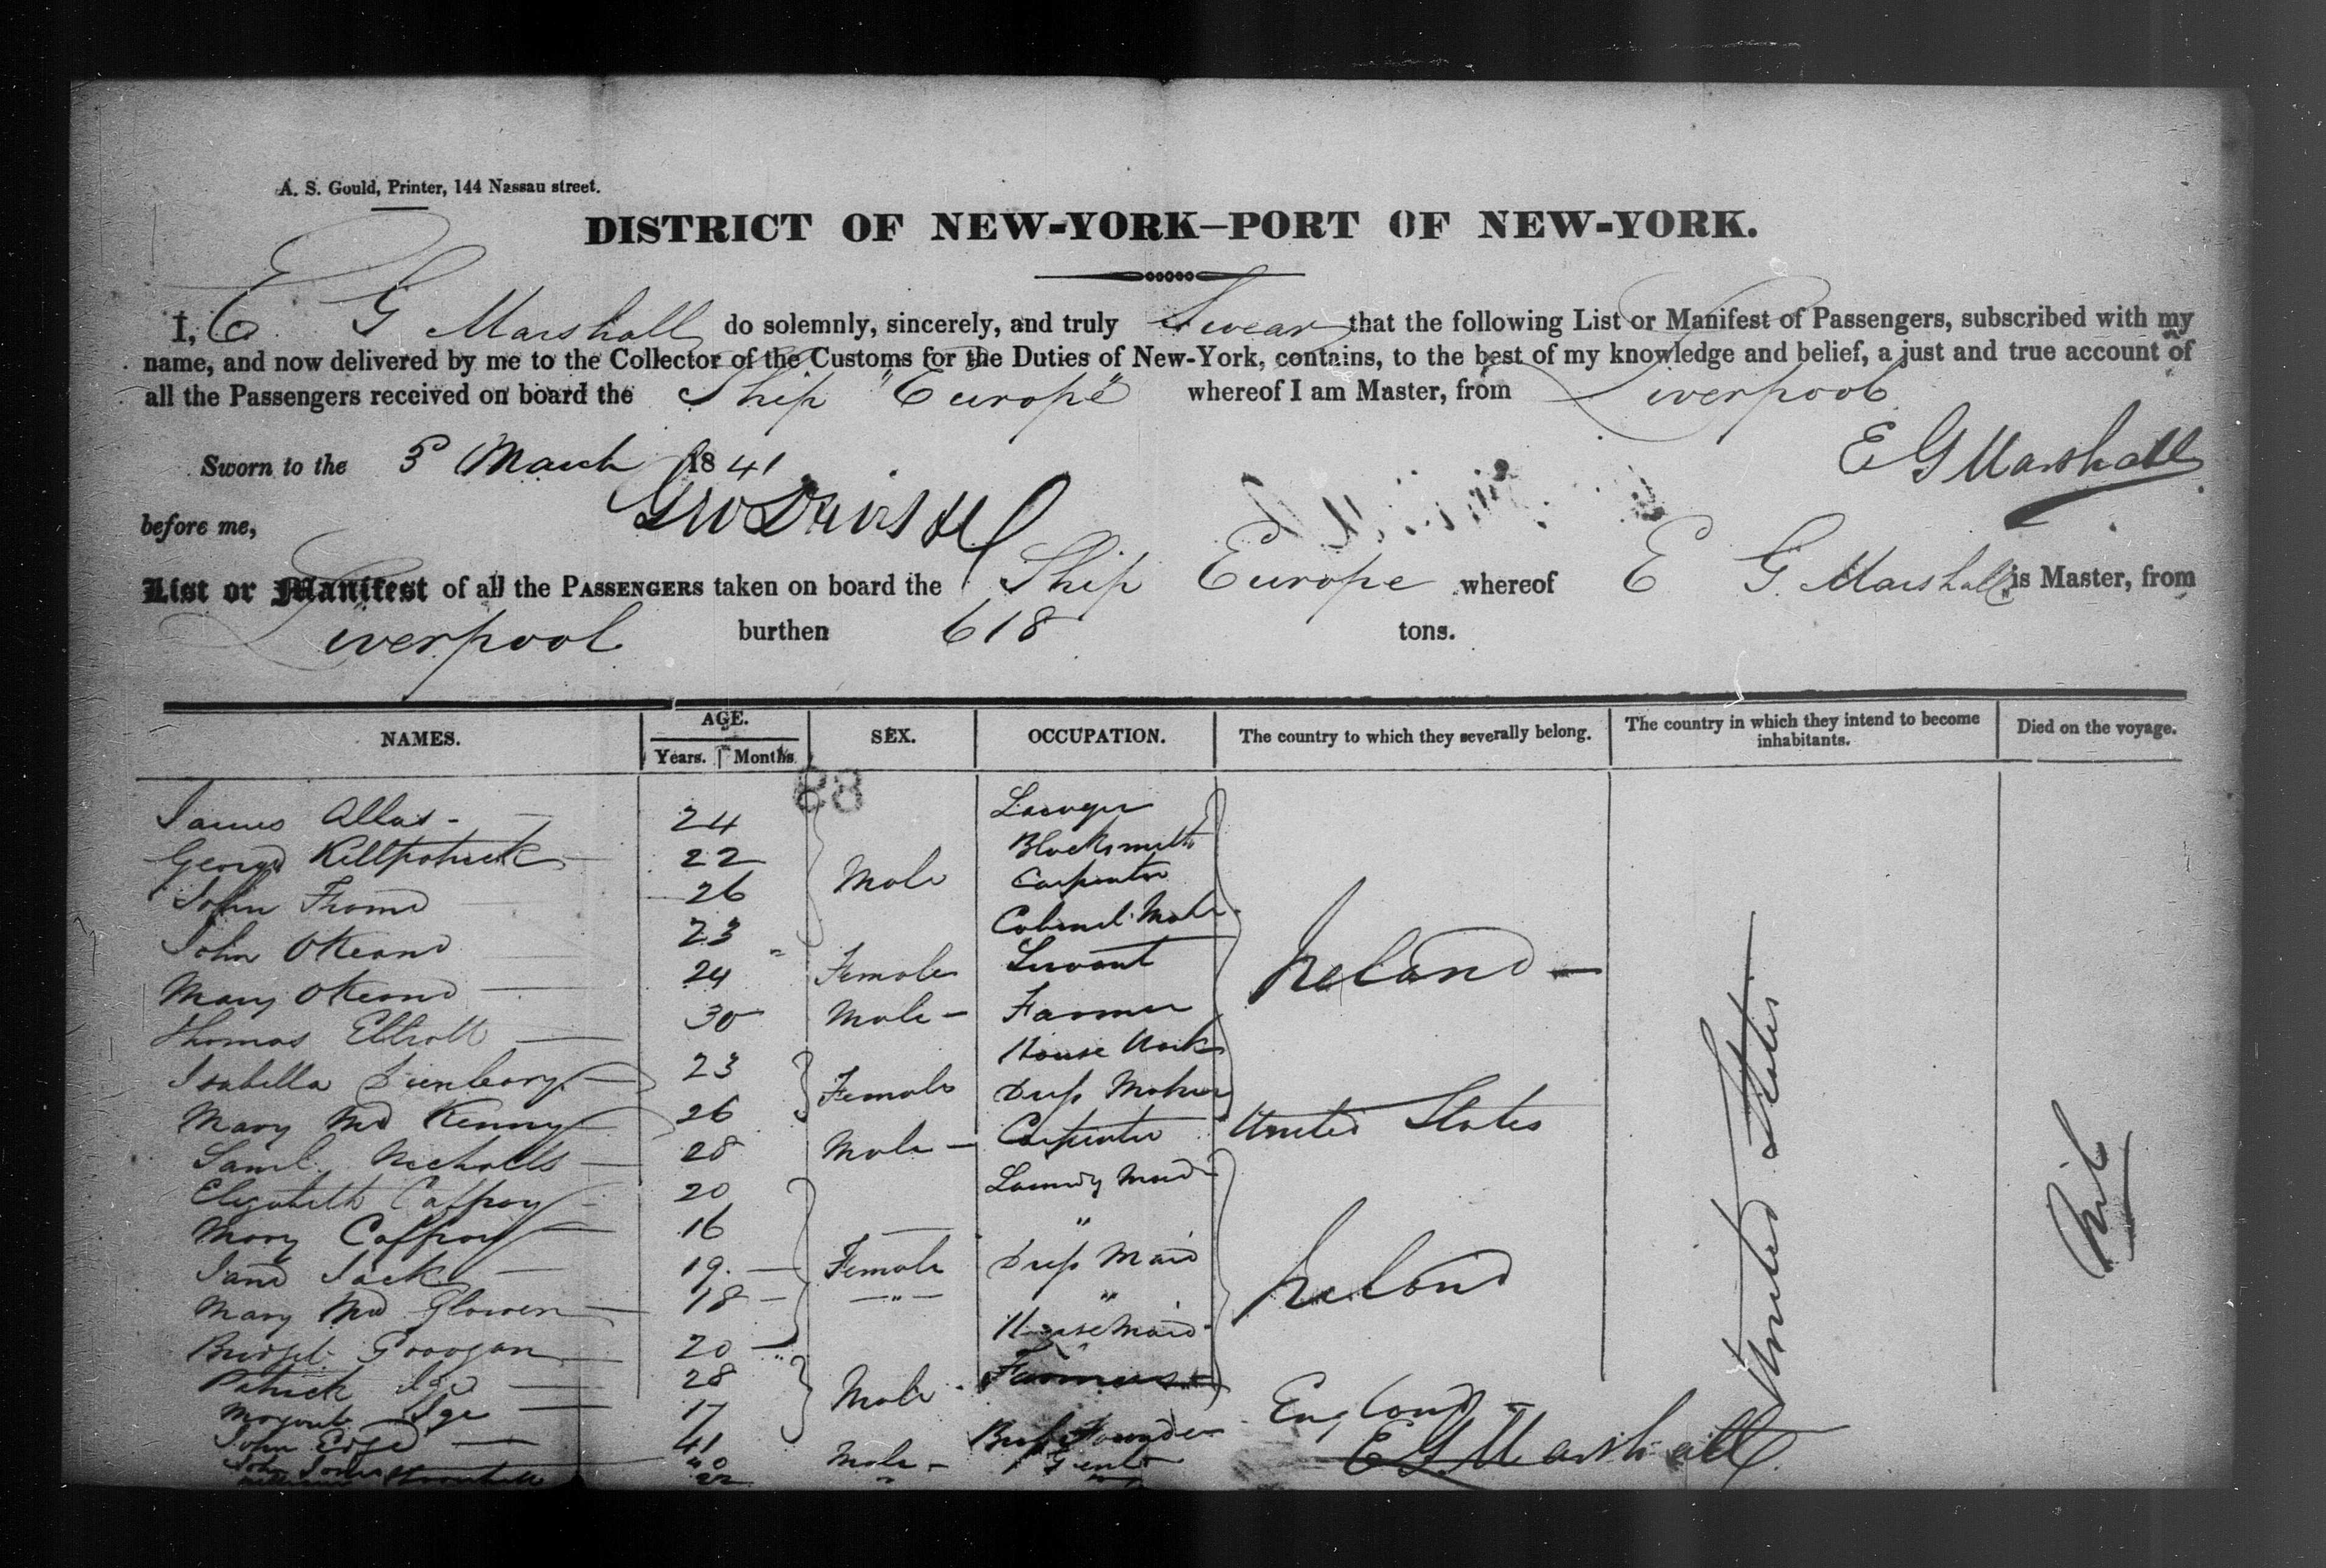 A. S. Gould, Printer, 144 Nassau street.
DISTRICT OF NEW-YORK—PORT OF NEW-YORK.
I, E. G Marshall do solemnly, sincerely, and truly Swear that the following List or Manifest of Passengers, subscribed with my
name, and now delivered by me to the Collector of the Customs for the Duties of New-York, contains, to the best of my knowledge and belief, a just and true account of
all the Passengers received on board the Ship "Europe" whereof I am Master, from Liverpool
E G Marshall
Sworn to the 3d March 1841
before me,
List or Manifest of all the PASSENGERS taken on board the Ship Europe whereof E G. Marshall is Master, from
Liverpool burthen 618 tons.
NAMES. AGE. Years. Months. SEX. OCCUPATION. The country to which they severally belong. The country in which they intend to become inhabitants. Died on the voyage.
88
James 24 Male
George Killpatrick 22 Blacksmith
John 26 Carpenter
John OKeand 23
Mary OKeand 24 Female Servant Ireland
Thomas Elliott 30 Male Farmer
Isabella 23 Female House Work
Mary Mc Kenny 26 Dress Maker
Saml. Nicholls 28 Male Carpenter United States
Elizabeth Caffray 20 Female
Mary Caffray 16 "
Jane Jack 19 Dress Maid Ireland
Mary Mc 18 " "
Bridget 20 House Maid
Patrick 28 Male Farmers
17
John 41 England
Male Gent
United States
Nil
E G Marshall